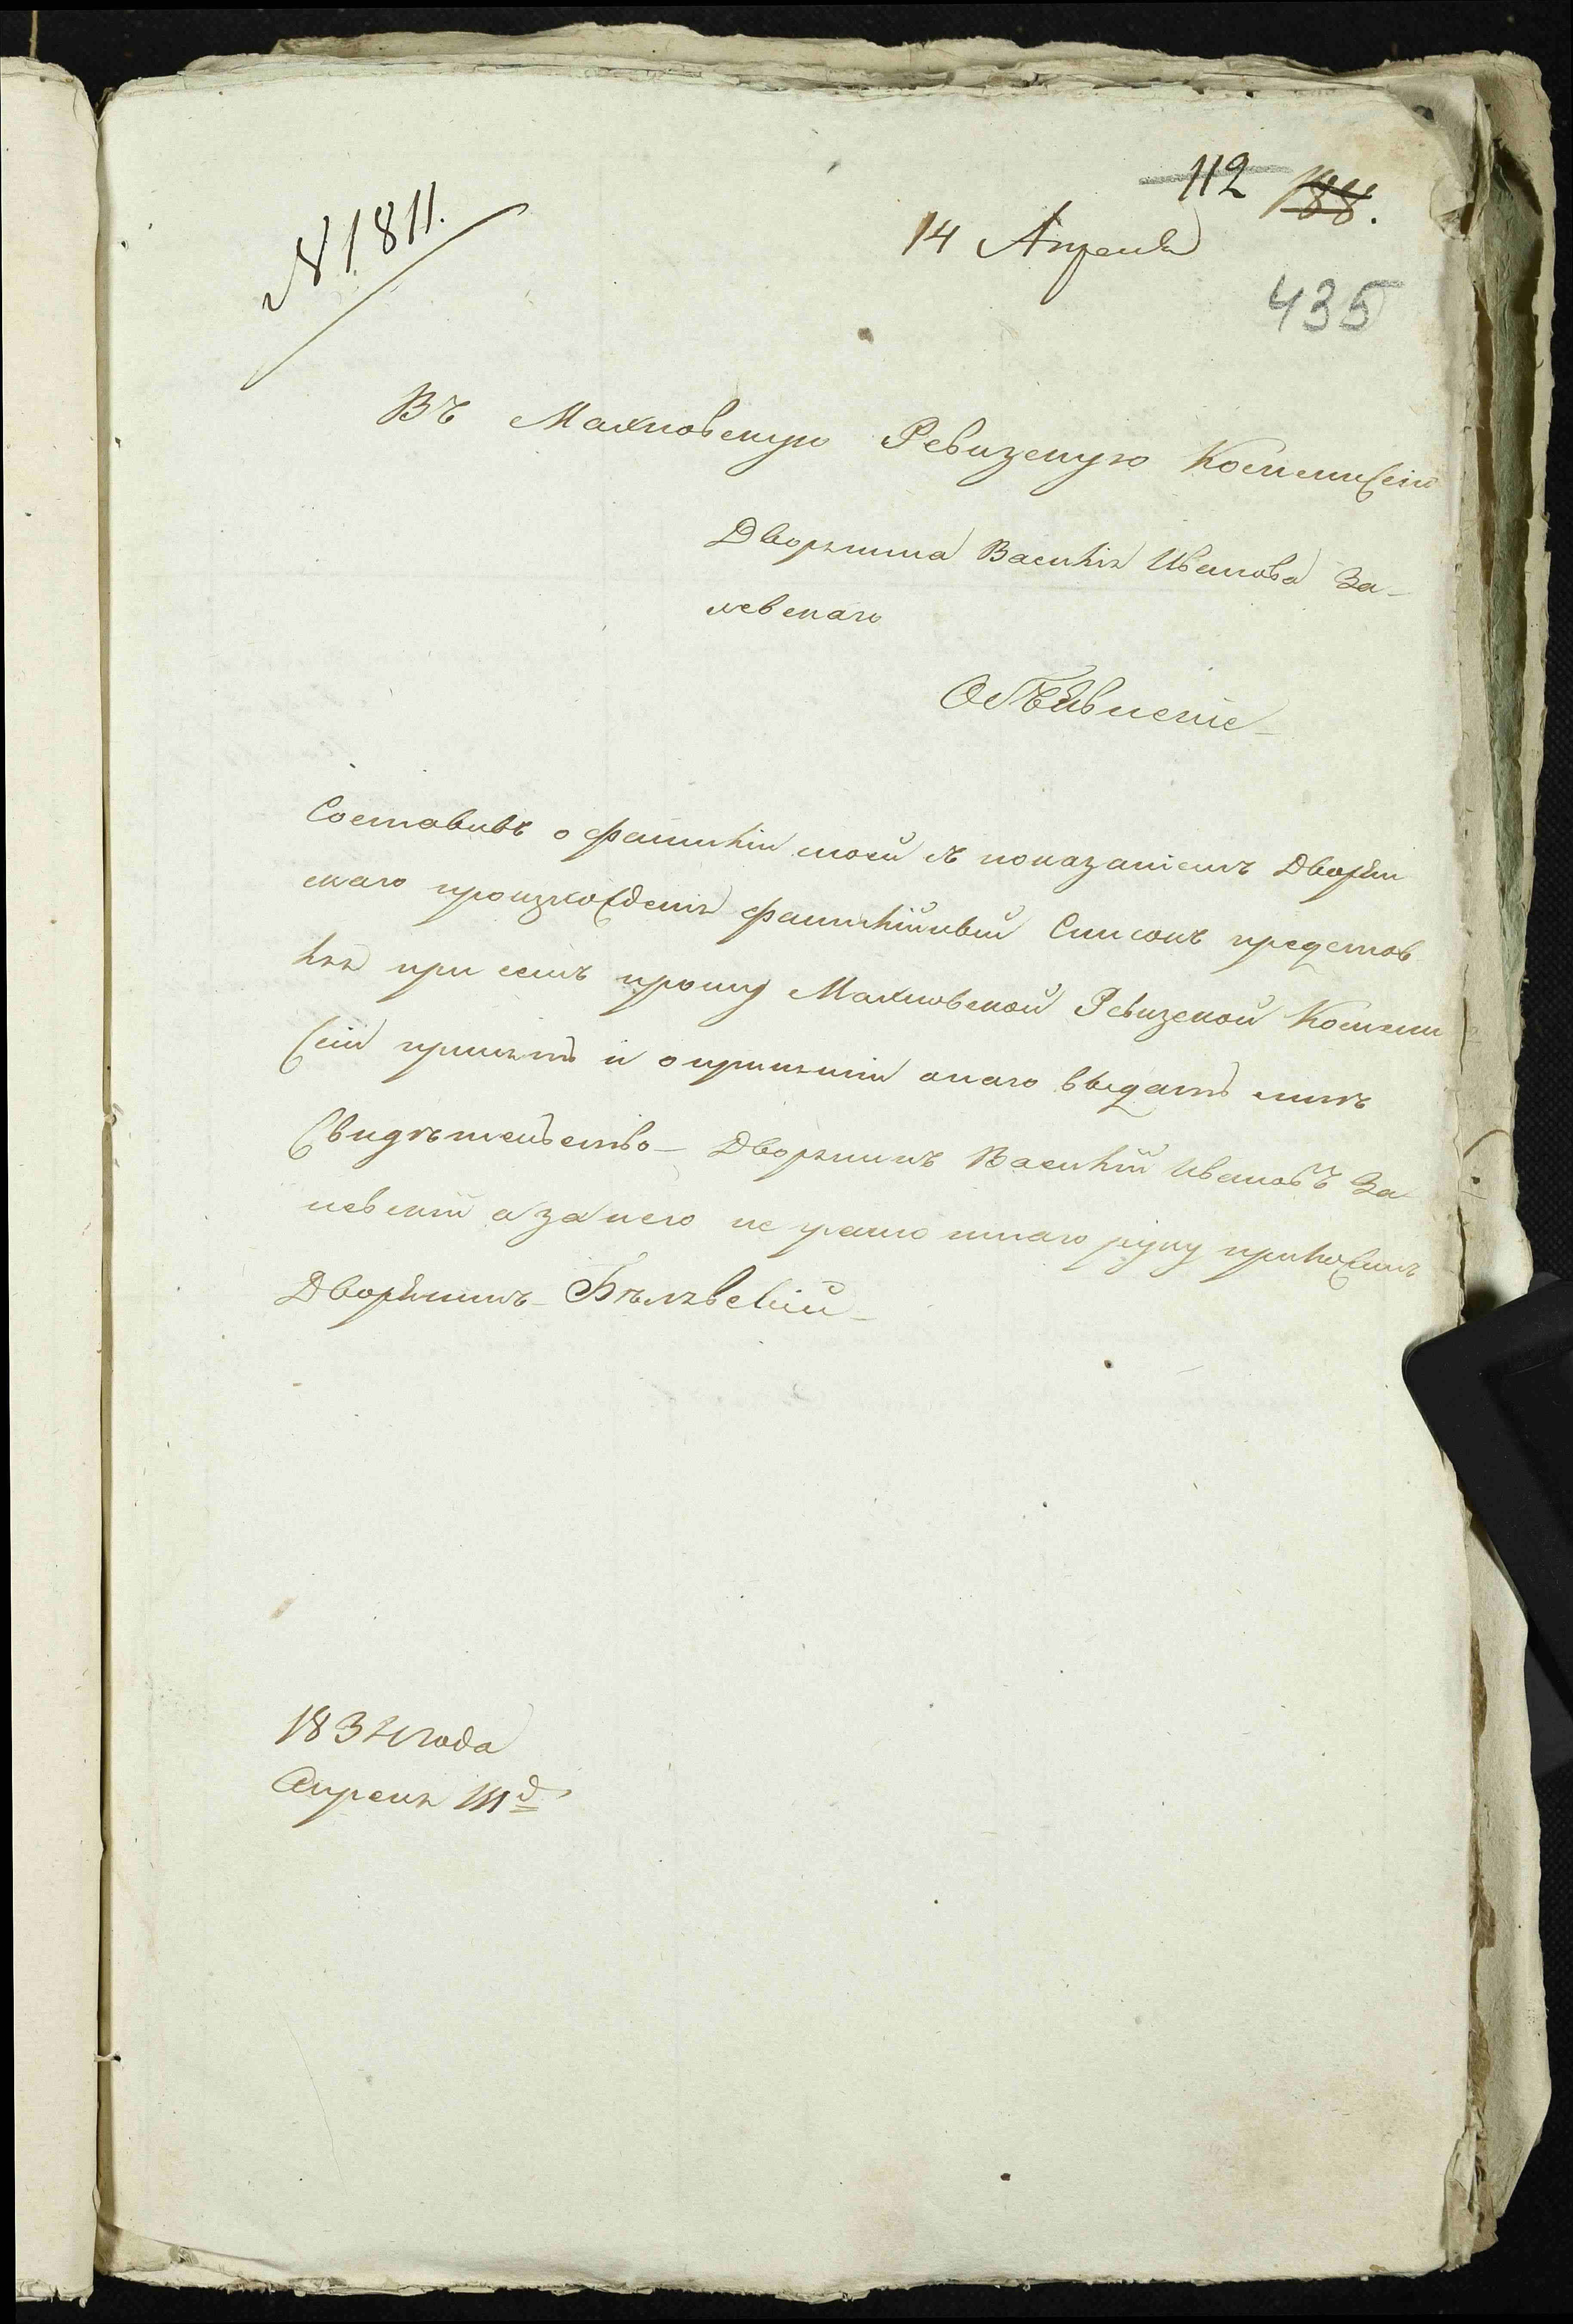 112 188.
№ 1811.
14 Апреля
435
Въ Махновскую Ревизскую Коммисию
Дворянина Василія Иванова За-
левскаго
Объявленіе
Составивъ о фамиліи моей съ показаніемъ Дворян
скаго произхожденія фамилійный Списокъ представ
ляя при семъ прошу Махновской Ревизской Комми
сіи принять и о принятіи онаго выдать мнѣ
Свидѣтельство – Дворянинъ Василій Ивановъ За
левскій а за него не грамотнаго руку приложилъ
Дворянинъ
1834 года
Апреля д